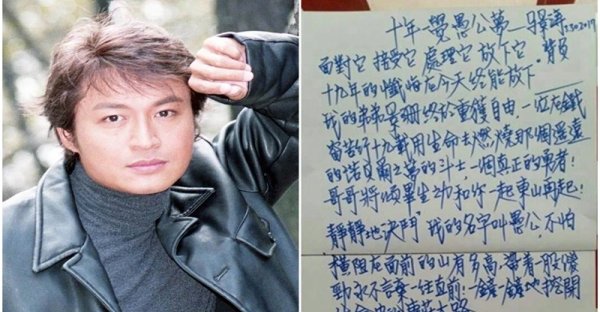 十年一覺愚公夢—釋譯 5302019
面對它 接受它 處理它 放下它。背負
十九年的懺悔在今天終能放下
我的弟弟吳珊終於重獲自由,一位在鐵
窗苦守十九載用生命去燃燒那個遙遠
的諾貝爾之夢的斗士,一個真正的勇者!
哥哥將傾畢生功力和你一起東山再起!
靜靜地決鬥,我的名字叫愚公,不怕
橫阻在面前的山有多高,帶着一股傻
勁永不言棄一往直前,一鏟一鏟地挖開